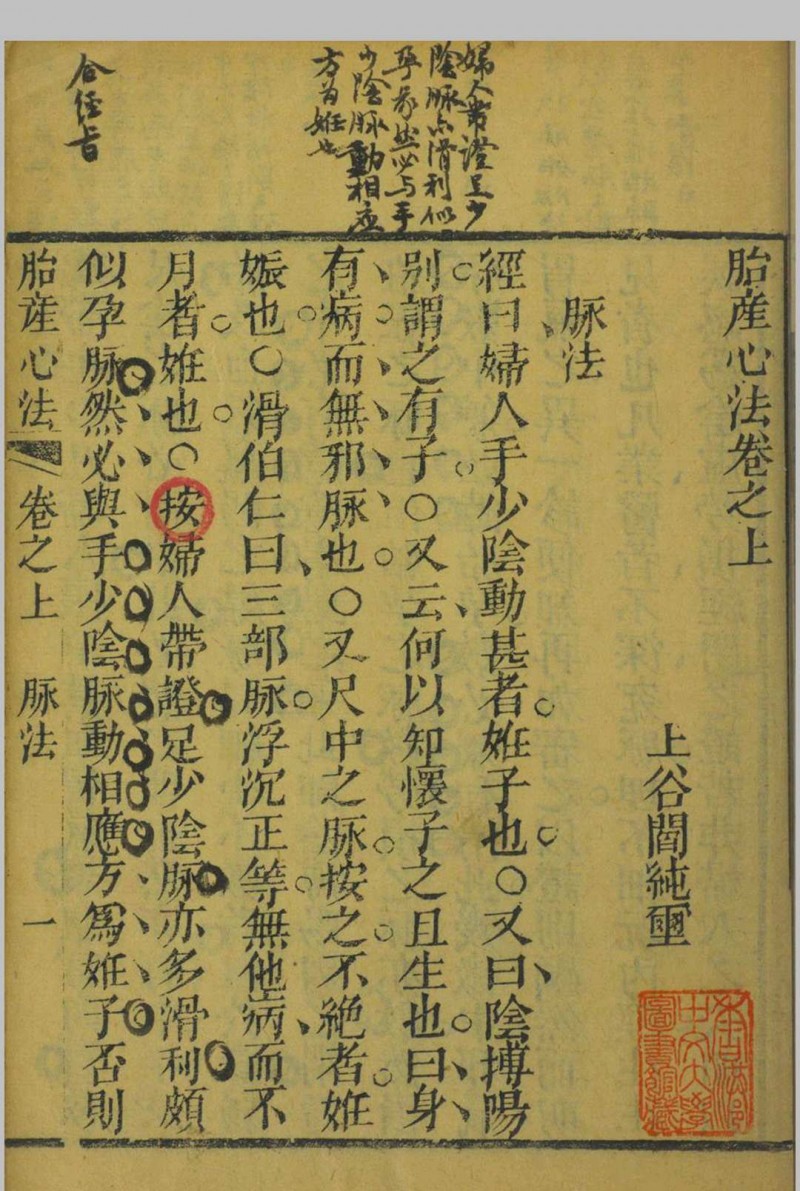 胎產心法卷之上
上谷閻純璽
脉法
經曰婦人手少陰動甚者姙子也○又曰陰搏陽
別謂之有子○又云何以知懷子之且生也曰身
有病而無邪脉也○又尺中之脉按之不絶者姙
娠也○滑伯仁曰三部脉浮沉正等無他病而不
月者姙也○按婦人帶證足少陰脉亦多滑利頗
似孕脉然必與手少陰脉動相應方爲姙子否則
胎產心法 卷之上 脉法 一
婦人帶證足少
陰脉亦滑利似
孕象然必与手
少陰脉動相应
方爲姙也
合经旨